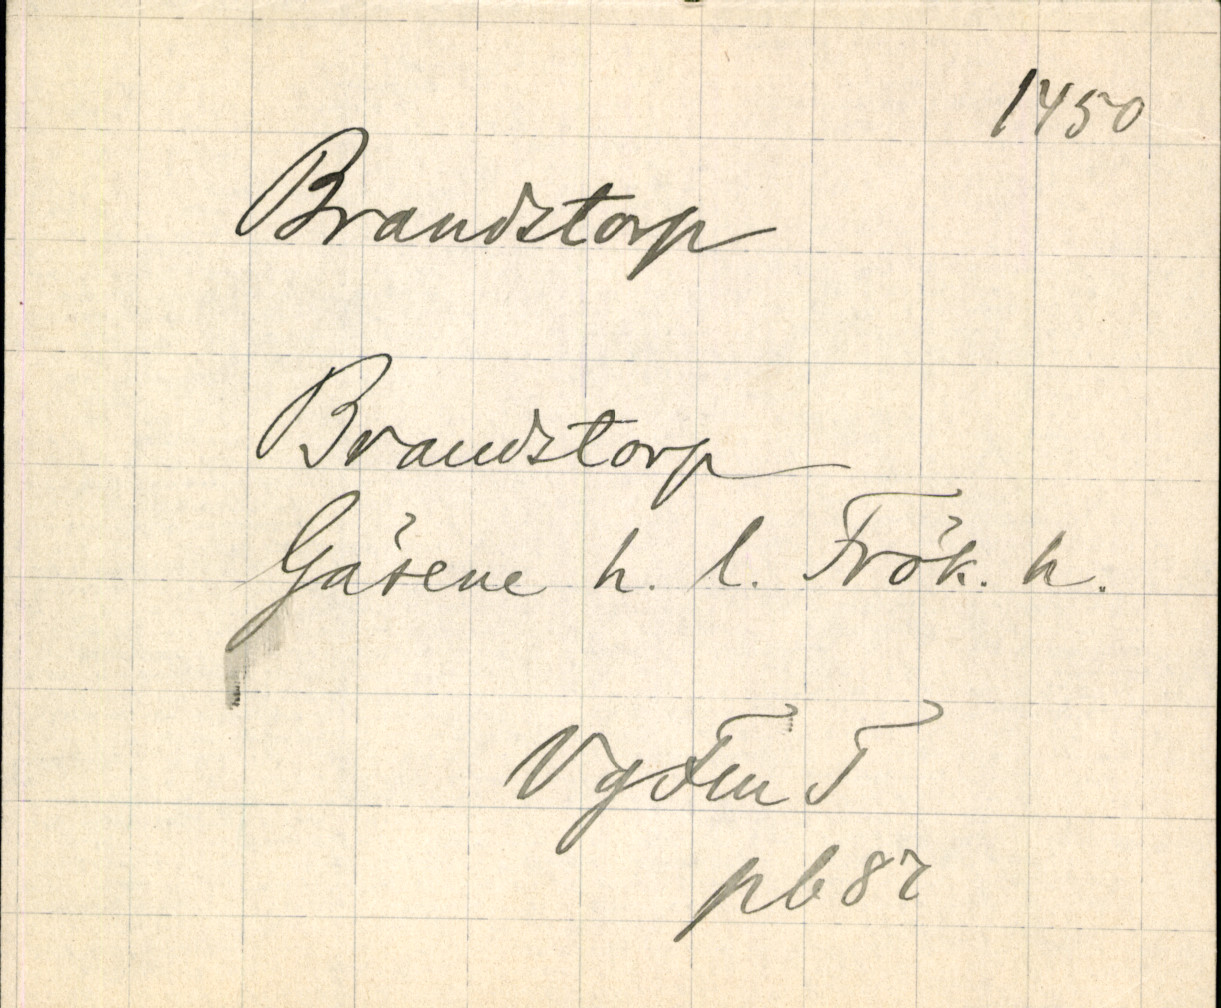 1450
Brandstorp
Brandstorp
Gäsene h. l. Frök. h.
Vg Fnu T
pb 82